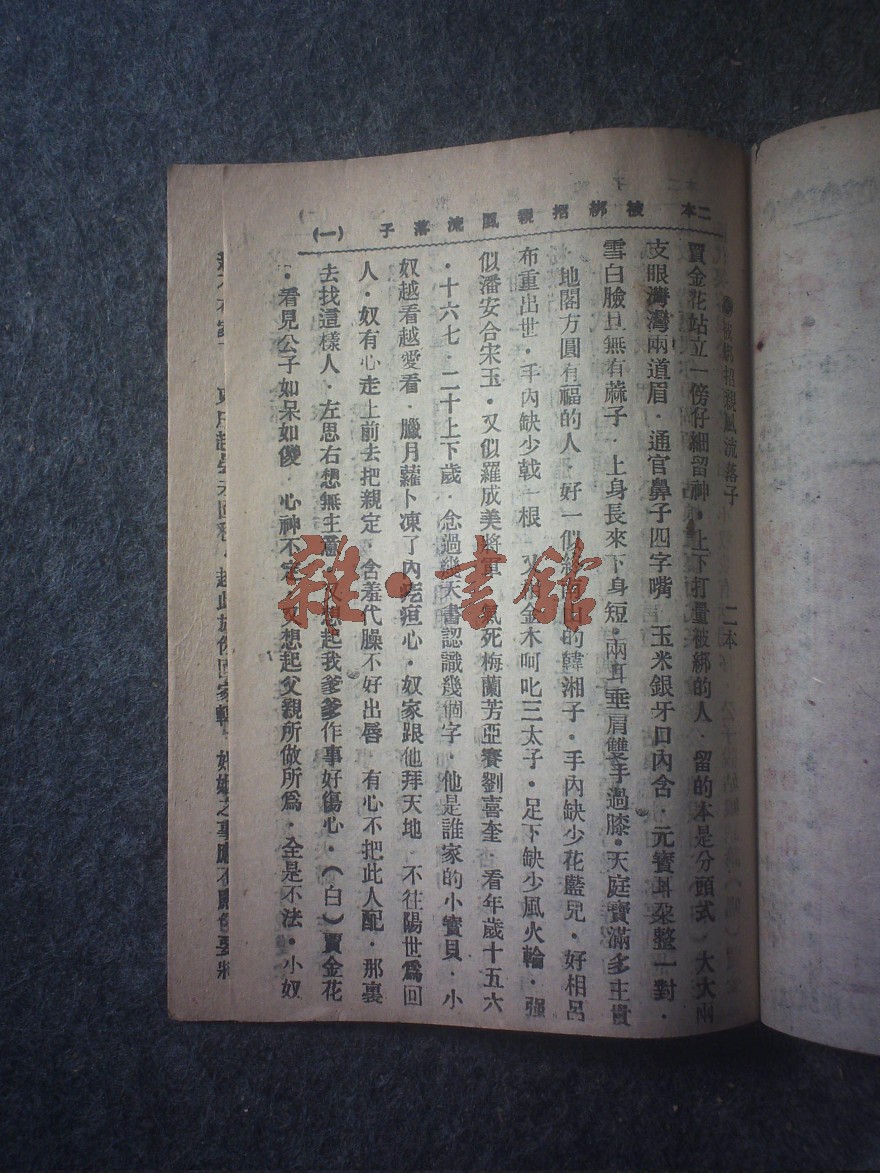 二本 被綁招親風流落子 (一)
●被綁招親風流落子 二本
賈金花站立一傍仔細留神·上下打量被綁的人·留的本是分頭式·大大兩
支眼灣灣兩道眉·通官鼻子四字嘴·玉米銀牙口內含·元寶耳朶整一對·
雪白臉旦無有蔴子·上身長來下身短·兩耳垂肩雙手過膝·天庭寶滿多主貴
·地閣方圓有福的人·好一似終南山的韓湘子·手內缺少花藍兒·好相呂
布重出世·手內缺少戟一根·又相金木呵叱三太子·足下缺少風火輪·强
似潘安合宋玉·又似羅成美將軍·氣死梅蘭芳亞賽劉喜奎·看年歲十五六
·十六七·二十上下歲·念過幾天書認識幾個字·他是誰家的小寶貝·小
奴越看越愛看·臘月蘿卜凍了內疙疸心·奴家跟他拜天地·不往陽世爲回
人·奴有心走上前去把親定·含羞代臊不好出唇·有心不把此人配·那裏
去找這樣人·左思右想無主意·又想起我爹爹作事好傷心·(白)賈金花
·看見公子如呆如傻·心神不定·又想起父親所做所爲·全是不法·小奴
雜·書舘